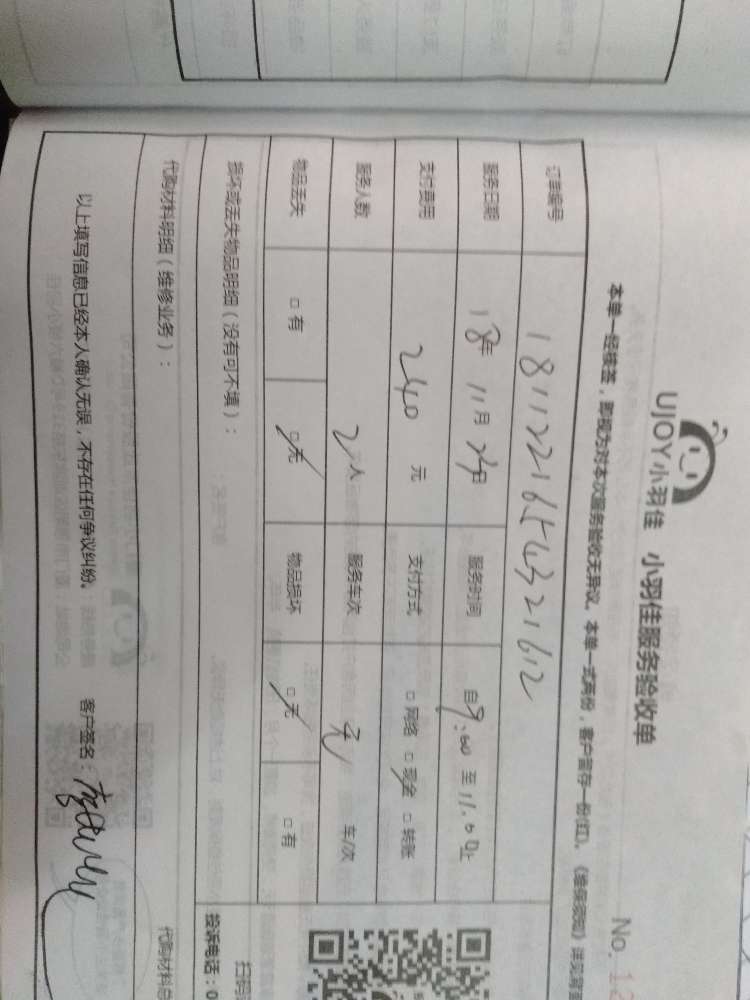 UJOY小羽佳 小羽佳服务验收单
No. 12
本单一经核签，即视为对本次服务验收无异议。本单一式两份，客户留存一份(红)。《维保须知》详见背
订单编号 1811221654321612
服务日期 18年 11月 24日 服务时间 自9:00至11:00止
支付费用 240元 支付方式 □网络 □现金 □转账
服务人数 2人 服务车次 无 车/次
物品丢失 □有 □无 物品损坏 □无 □有
损坏或丢失物品明细（没有可不填）：
投诉电话：0
代购材料明细（维修业务）：
代购材料总
以上填写信息已经本人确认无误，不存在任何争议纠纷。 客户签名：